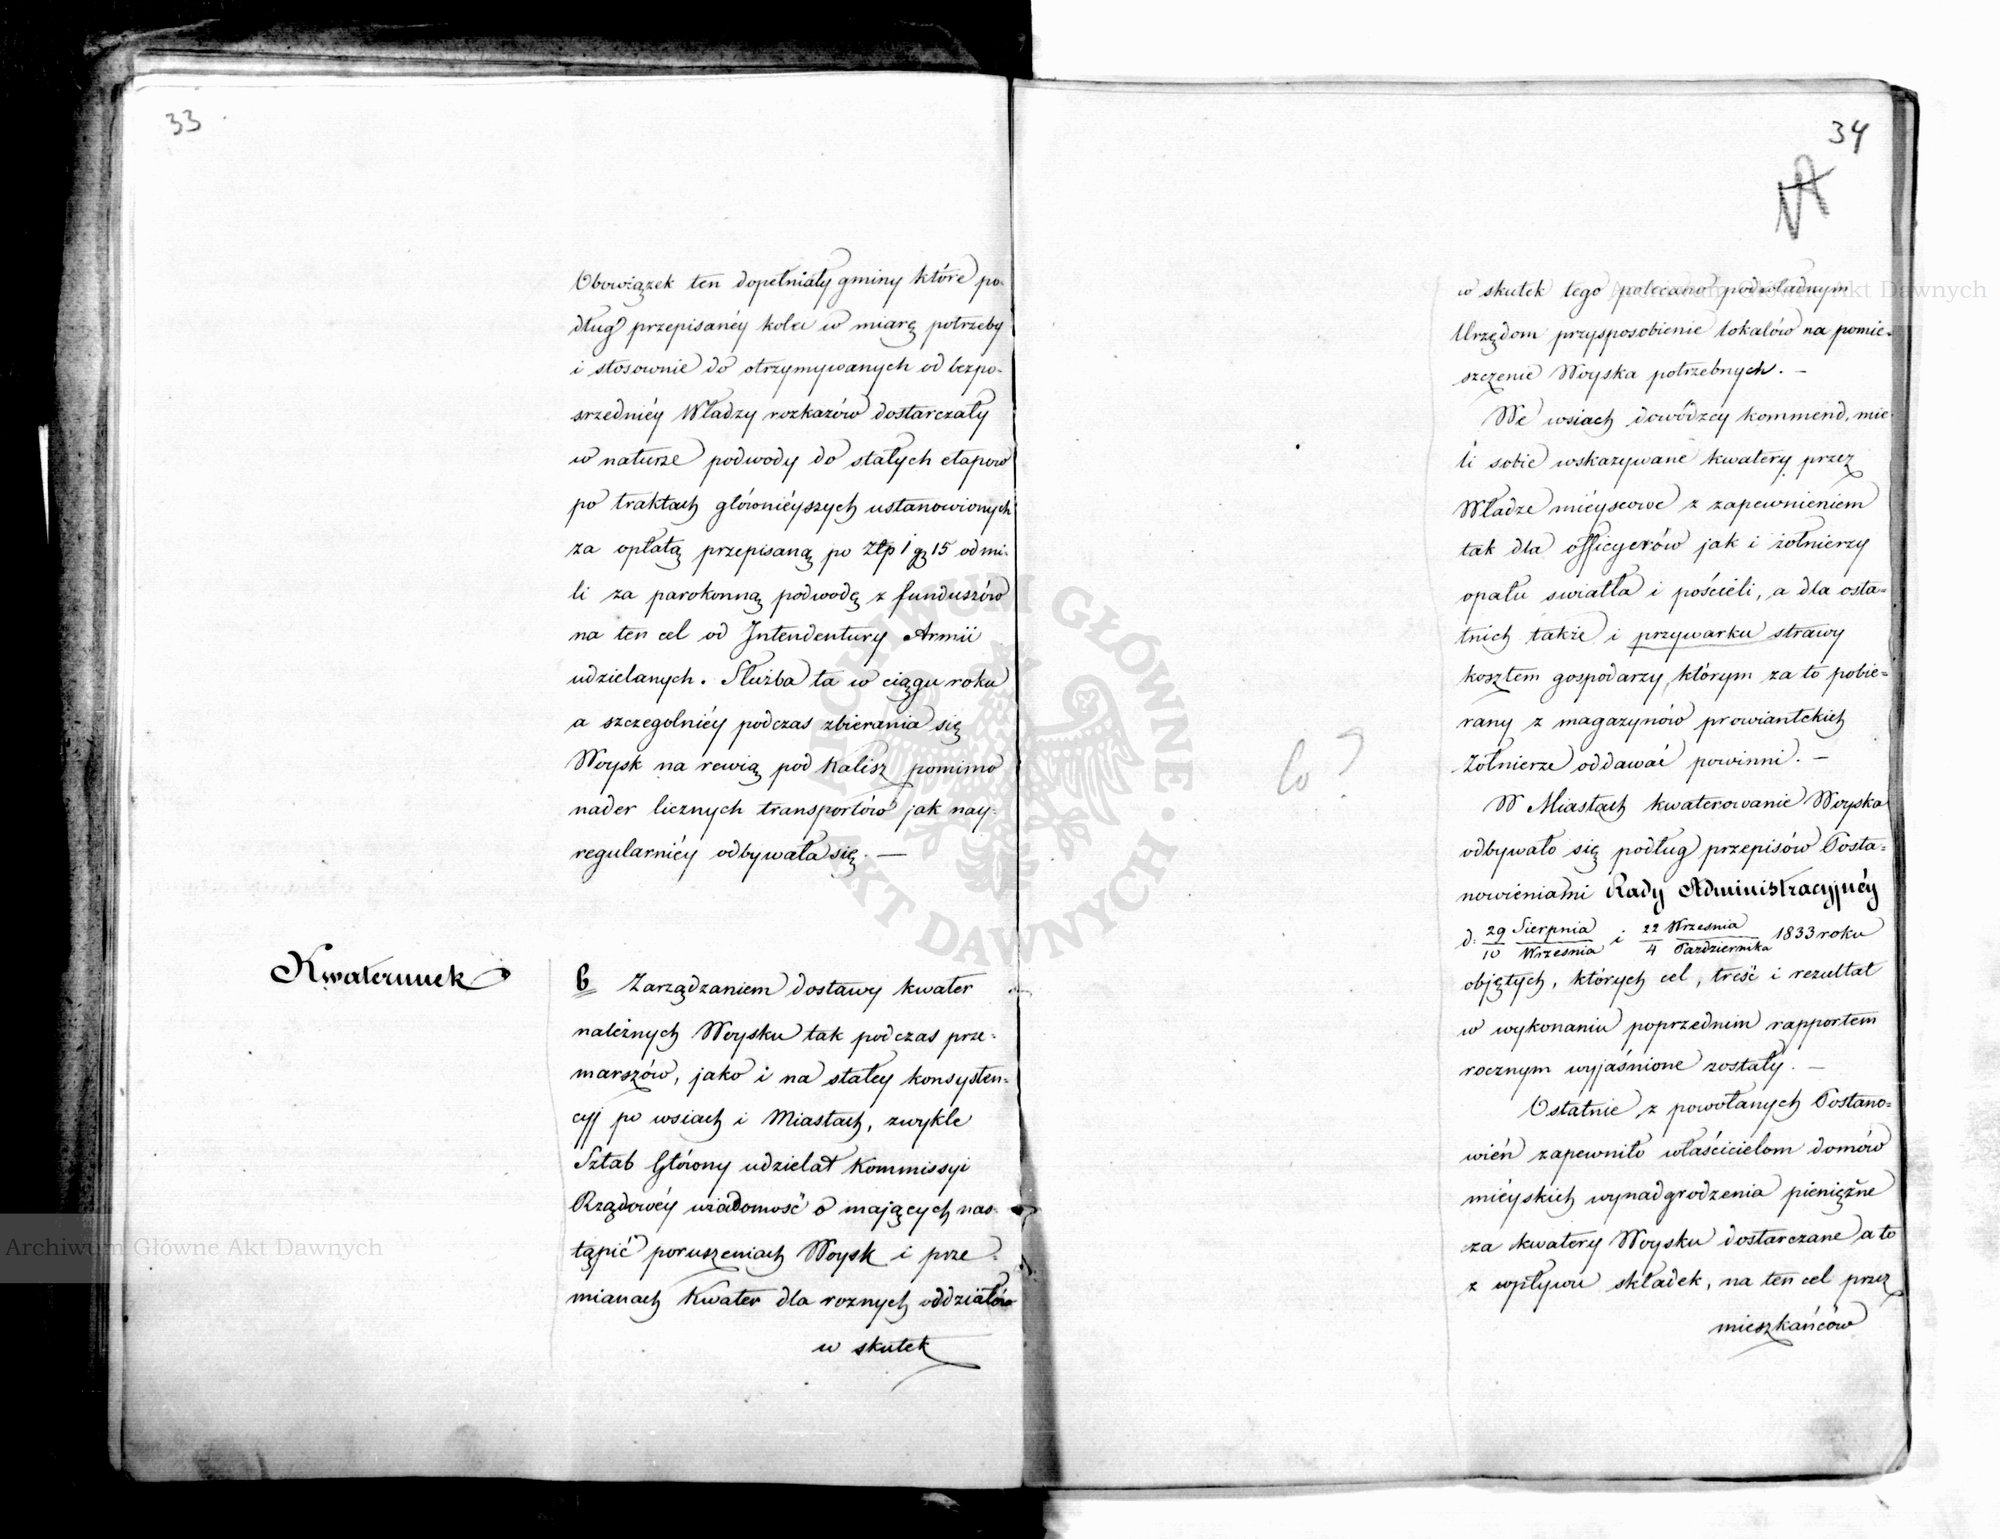 33
Obowiązek ten dopełniały gminy które po-
dług przepisanéy kolei w miarę potrzeby
i stosownie do otrzymywanych od bezpo-
srzedniéy Władzy rozkazów dostarczały
w naturze podwody do stałych etapow
po traktach głównieyszych ustanowionych
za opłatą przepisaną po Złp 1 gr 15 od mi-
li za parokonną podwodę z funduszów
na ten cel od Jntendentury Armii
udzielanych. Służba ta w ciągu roku
a szczegolniéy podczas zbierania się
Woysk na rewią pod Kalisz pomimo
nader licznych transportów jak nay-
regularniéy odbywała się. —
Kwaterunek
6 Zarządzaniem dostawy kwater
należnych Woysku tak podczas prze-
marszów, jako i na stałey konsysten-
cyj po wsiach i Miastach, zwykle
Sztab Główny udzielał Kommissyi
Rządowéy wiadomość o mających nas-
tąpić poruszeniach Woysk i prze-
mianach Kwater dla roznych oddziałów
w skutek
34
w skutek tego polecano podwładnym
Urzędom przysposobienie lokalów na pomie-
szczenie Woyska potrzebnych. —
We wsiach dowódzcy kommend, mie-
li sobie wskazywane kwatery przez
Władze miéyscowe z zapewnieniem
tak dla officyerów jak i żołnierzy
opału swiatła i pościeli, a dla osta-
tnich także i przywarku strawy
kosztem gospodarzy, którym za to pobie-
rany z magazynów prowiantckich
Żołnierze oddawać powinni. —
Co?
W Miastach kwaterowanie Woyska
odbywało się podług przepisów Posta-
nowieniami Rady Administracyjnéy
d: 29 Sierpnia / 10 Wrzesnia i 22 Wrzesnia / 4 Pazdziernika 1833 roku
objętych, których cel, treść i rezultat
w wykonaniu poprzednim rapportem
rocznym wyjaśnione zostały. —
Ostatnie z powołanych Postano-
wień zapewniło właścicielom domów
miéyskich wynadgrodzenia pieniężne
za kwatery Woysku dostarczane a to
z wpływu składek, na ten cel przez
mieszkańców
ARCHIWUM GŁÓWNE AKT DAWNYCH
Archiwum Główne Akt Dawnych
Archiwum Główne Akt Dawnych